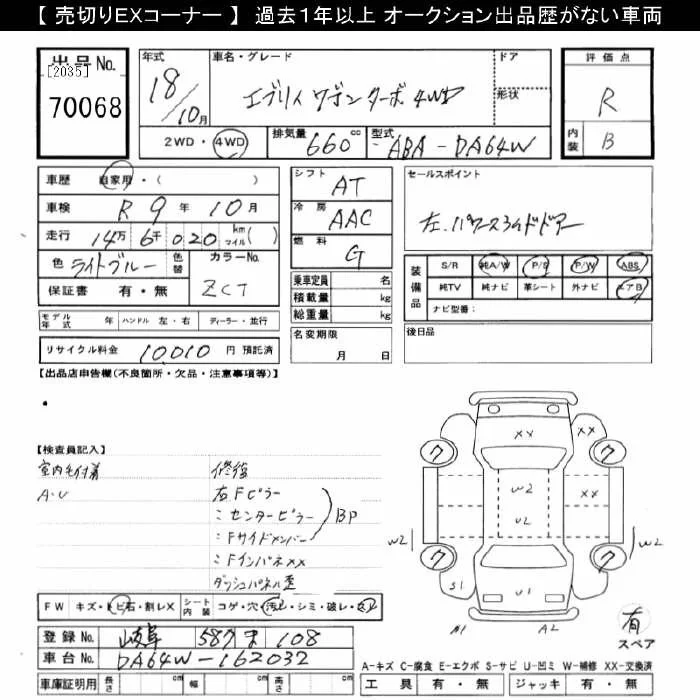 【 売切りEXコーナー 】 過去1年以上 オークション出品歴がない車両
出品No.
[2035]
70068
年式
18/10月
車名・グレード
エブリイ ワゴン ターボ 4WD
ドア
形状
2WD・4WD
排気量 660cc
型式 ABA-DA64W
評価点
R
内装 B
車歴 自家用・( )
車検 R 9 年 10 月
走行 14万 6千 020 km マイル( )
色 ライトブルー 色替 カラーNo. ZCT
保証書 有・無
モデル年式 年 ハンドル 左・右 ディーラー・並行
リサイクル料金 10,010 円 預託済
シフト AT
冷房 AAC
燃料 G
乗車定員 名
積載量 kg
総重量 kg
名変期限
月 日
セールスポイント
左.パワースライドドアー
装備品
S/R 純A/W P/S P/W ABS
純TV 純ナビ 革シート 外ナビ エアB
ナビ型番:
後日品
【出品店申告欄(不良箇所・欠品・注意事項等)】
【検査員記入】
室内毛付着
A・U
修復
右Fピラー
〃 センターピラー
〃 Fサイドメンバー
BP
〃 Fインパネ××
ダッシュパネル歪
FW キズ・トビ石・割レX シート内装 コゲ・穴・汚レ・シミ・破レ・
登録No. 岐阜 587 ま 108
車台No. DA64W-162032
車庫証明用 長さ cm 幅 cm 高さ cm
××
ク ク
W2 ××
U2
W2 W2
ク ク
S1 U1 S1
A1 A2
有
スペア
A-キズ C-腐食 E-エクボ S-サビ U-凹ミ W-補修 XX-交換済
工具 有・無 ジャッキ 有・無